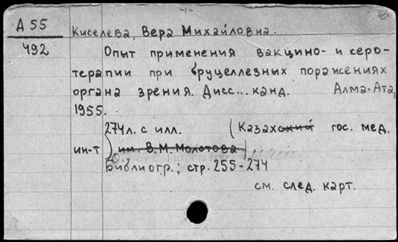 А 55
492
Киселева, Вера Михайловна.
Опыт применения вакцино- и серо-
терапии при бруцеллезных поражениях
органа зрения. Дисс... канд. Алма-Ата,
1955.
274л. с илл. (Казахский гос. мед.
ин-т им. В.М. Молотова)
Библиогр.; стр. 255-274
см. след. карт.